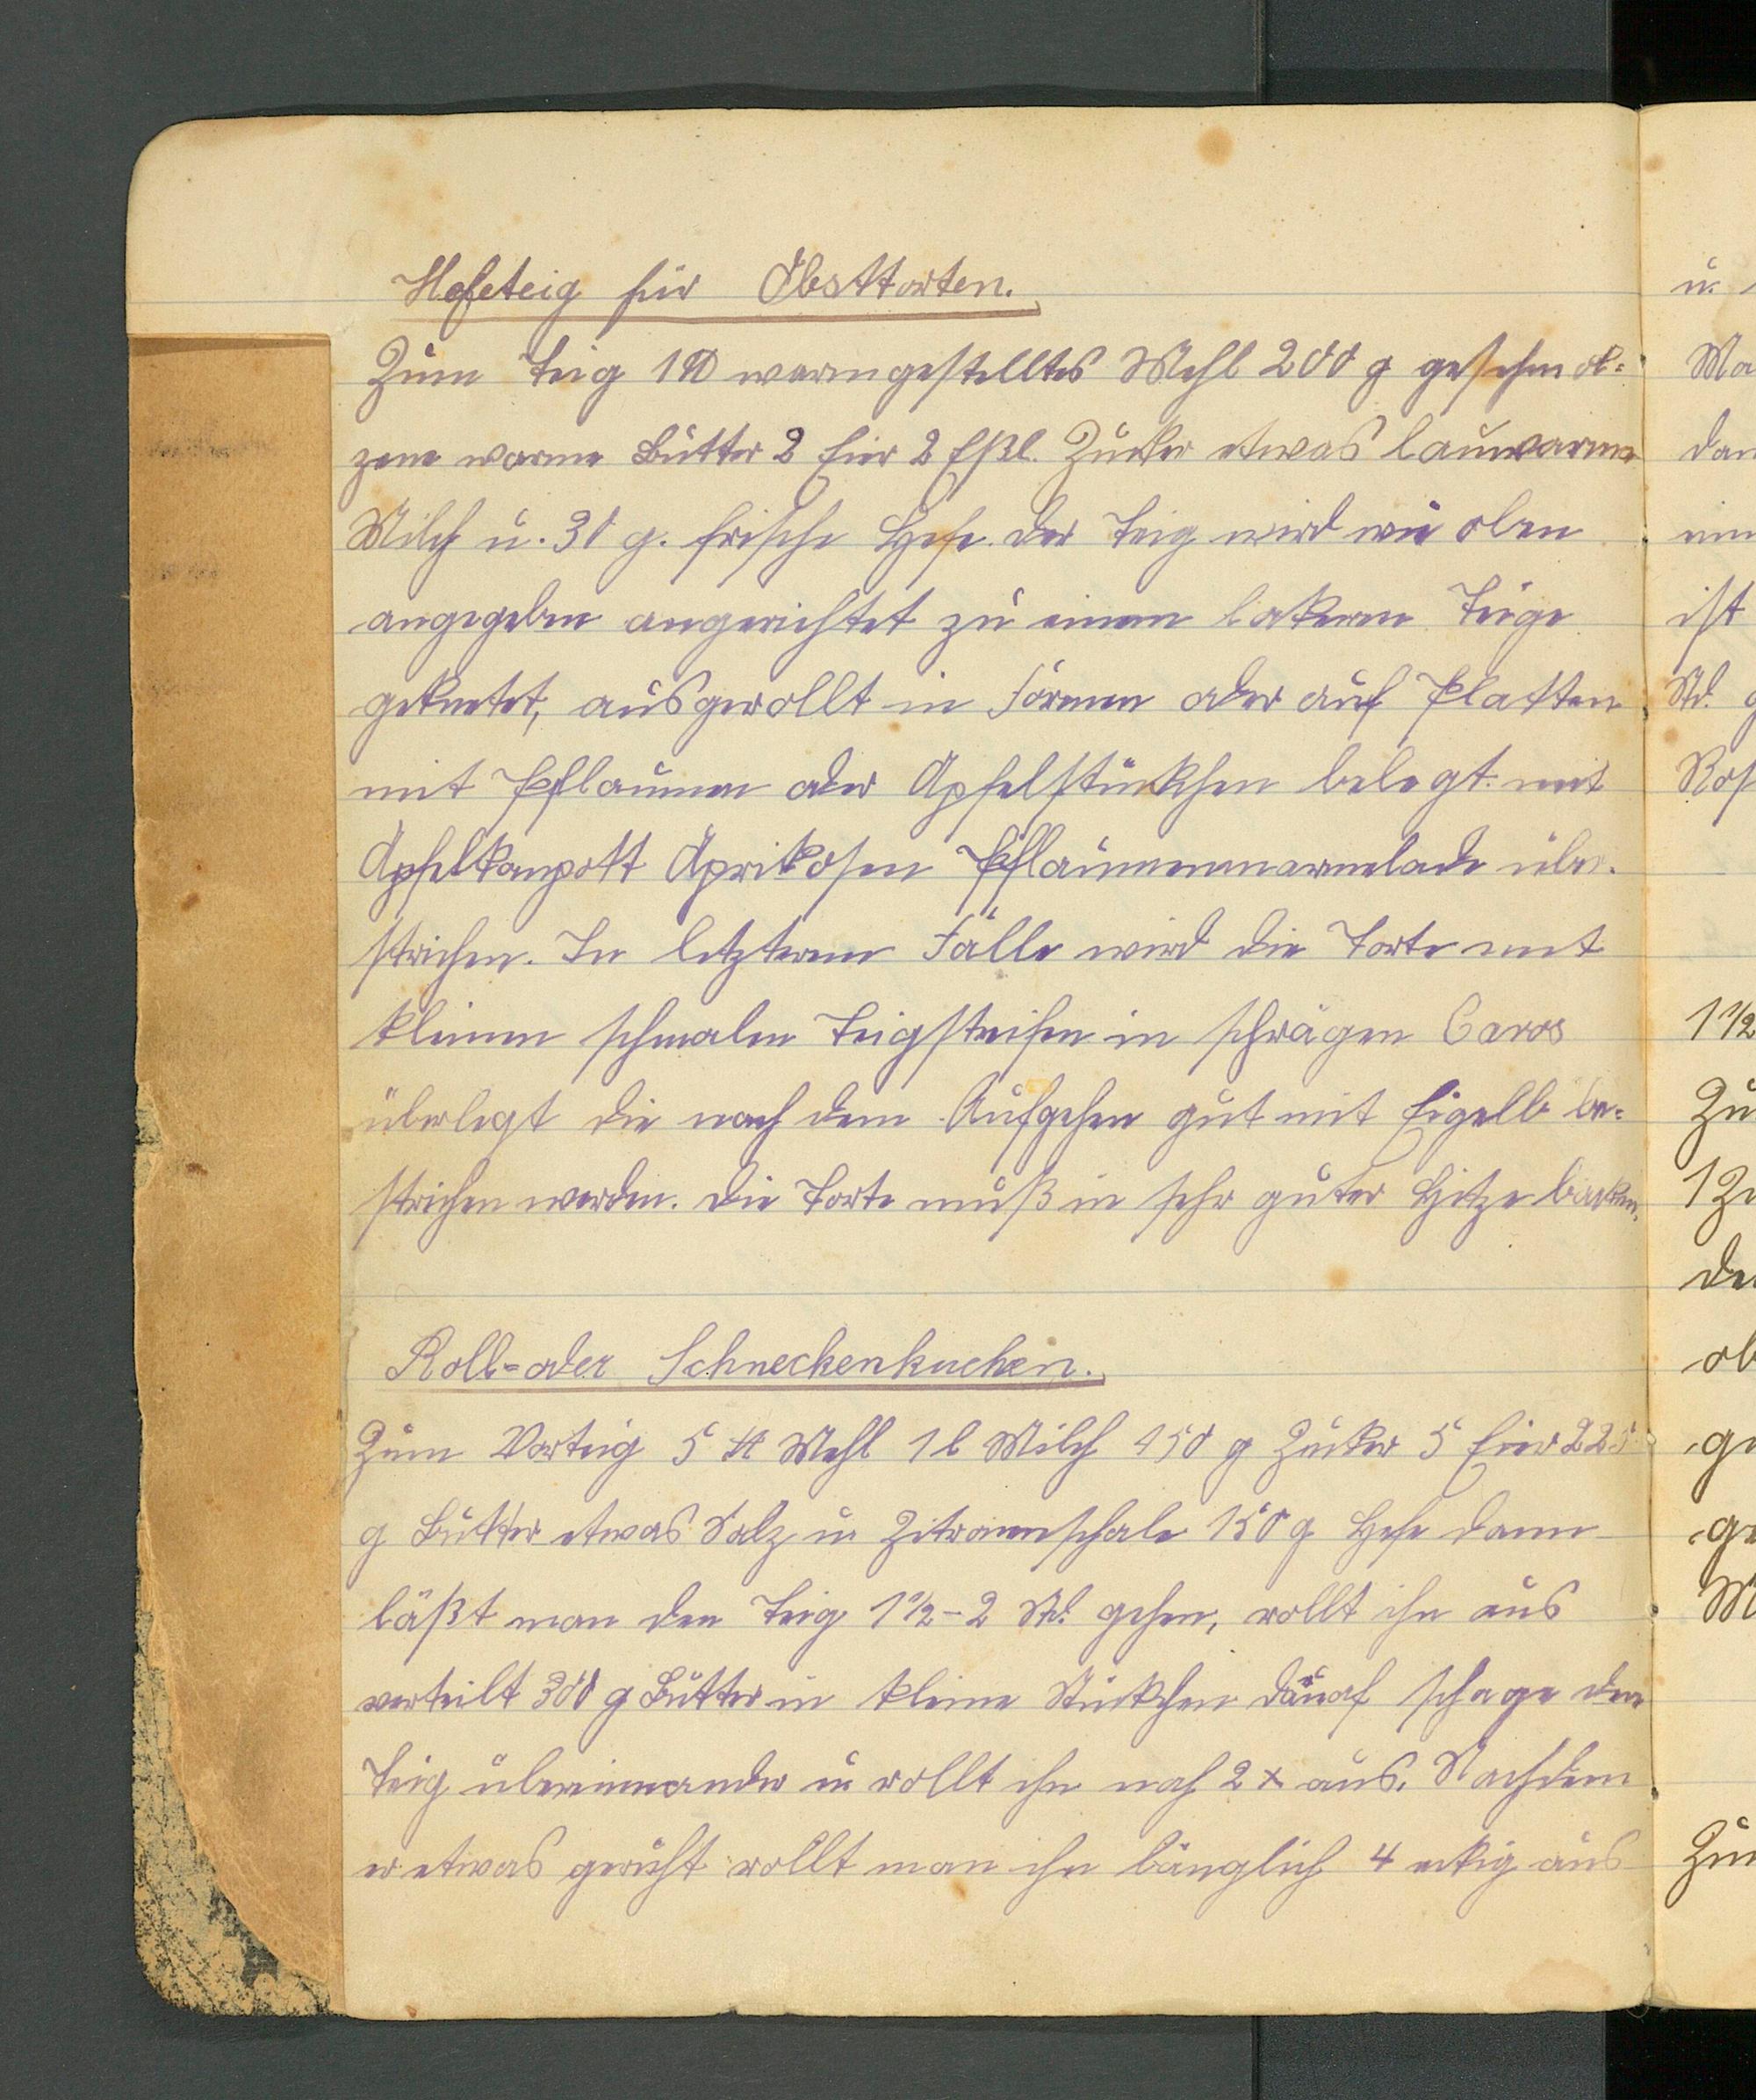 Hefeteig für Obsttorten.
Zum Teig 1 ℔ warmgestelltes Mehl 200 g geschmol=
zene warme Butter 2 Eier 2 Eßl. Zucker etwas lauwarme
Milch u. 30 g. frische Hefe. der Teig wird wie oben
angegeben angerichtet zu einem lockeren Teige
geknetet, ausgerollt in Formen oder auf Platten
mit Pflaumen oder Apfelstückchen belegt. mit
Apfelkompott Aprikosen Pflaumenmarmelade über.
strichen. In letzterem Fälle wird die Torte mit
kleinen schmalen Teigstreifen in schrägen Caros
überlegt die nach dem Aufgehen gut mit Eigelb be=
strichen werden. die Torte muß in sehr guter Hitze backen.
Roll=oder Schneckenkuchen.
Zum Vorteig 5 ℔ Mehl 1 l Milch 450 g Zucker 5 Eier 225
g Butter etwas Salz u Zitronenschale 150 g Hefe dann
läßt man den Teig 1½-2 Std. gehen, rollt ihn aus
verteilt 300 g Butter in kleine Stückchen darauf schage den
Teig übereinander u rollt ihn noch 2 x aus. Nachdem
er etwas geruht rollt man ihn länglich 4 eckig aus
u.
Ma
dan
ist
Std. g
1½
Zu
de
ob
ge
ge
M
Zum